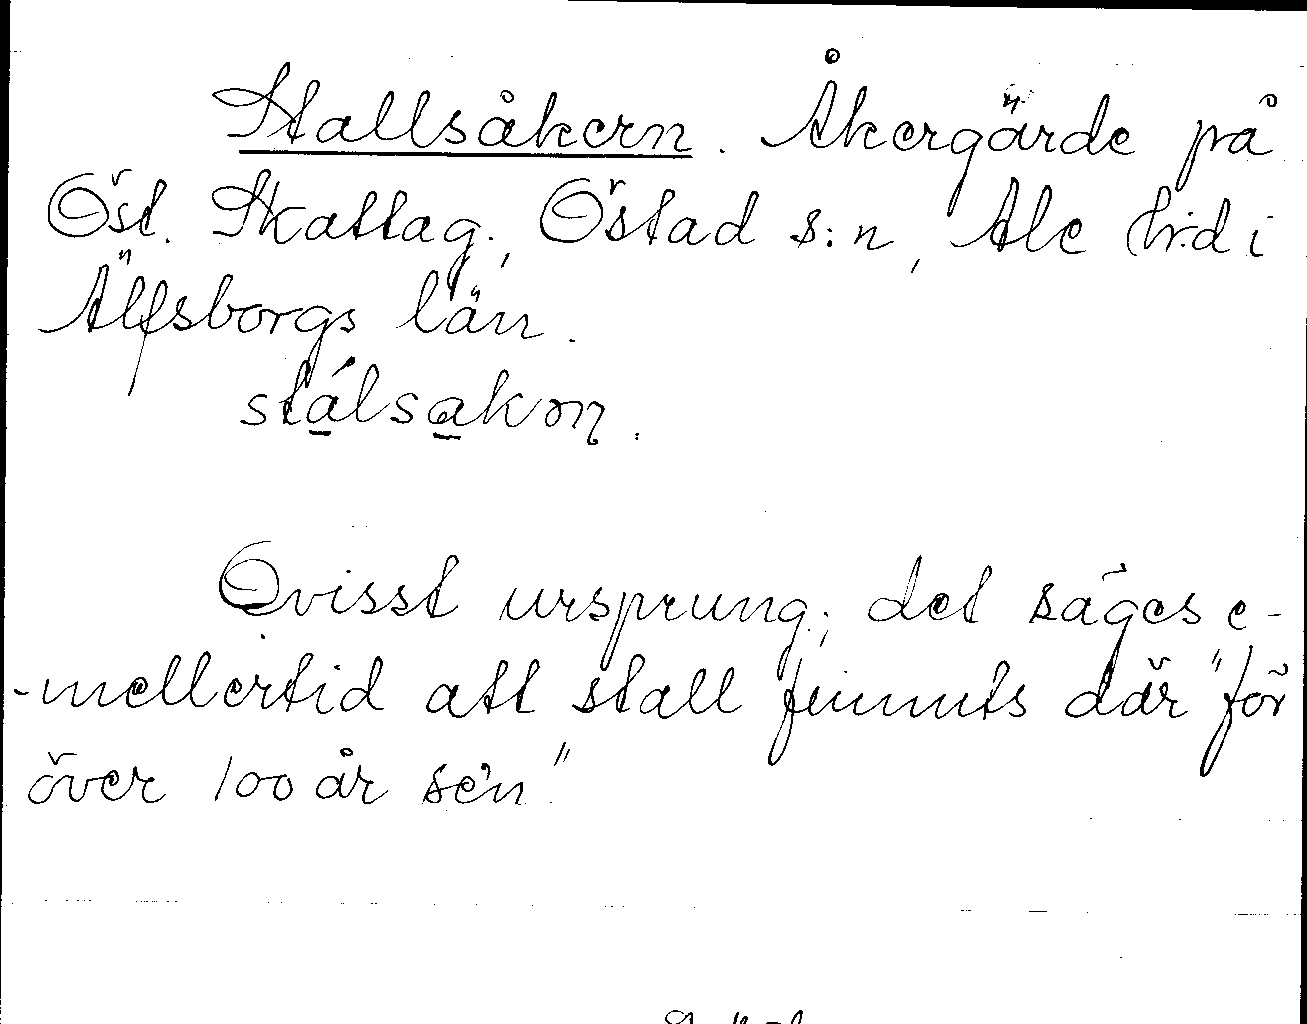 Stallsåkern. Åkergärde på
Öst. Skattag., Östad s:n, Ale hr:d i
Älfsborgs län.
stálsakɷn.
Ovisst ursprung; det säges e-
-mellertid att stall funnits där "för
över 100 år se'n."